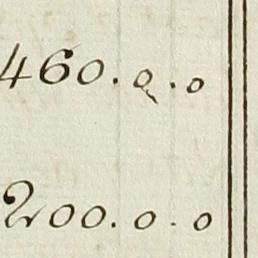 460.0.0
200.0.0